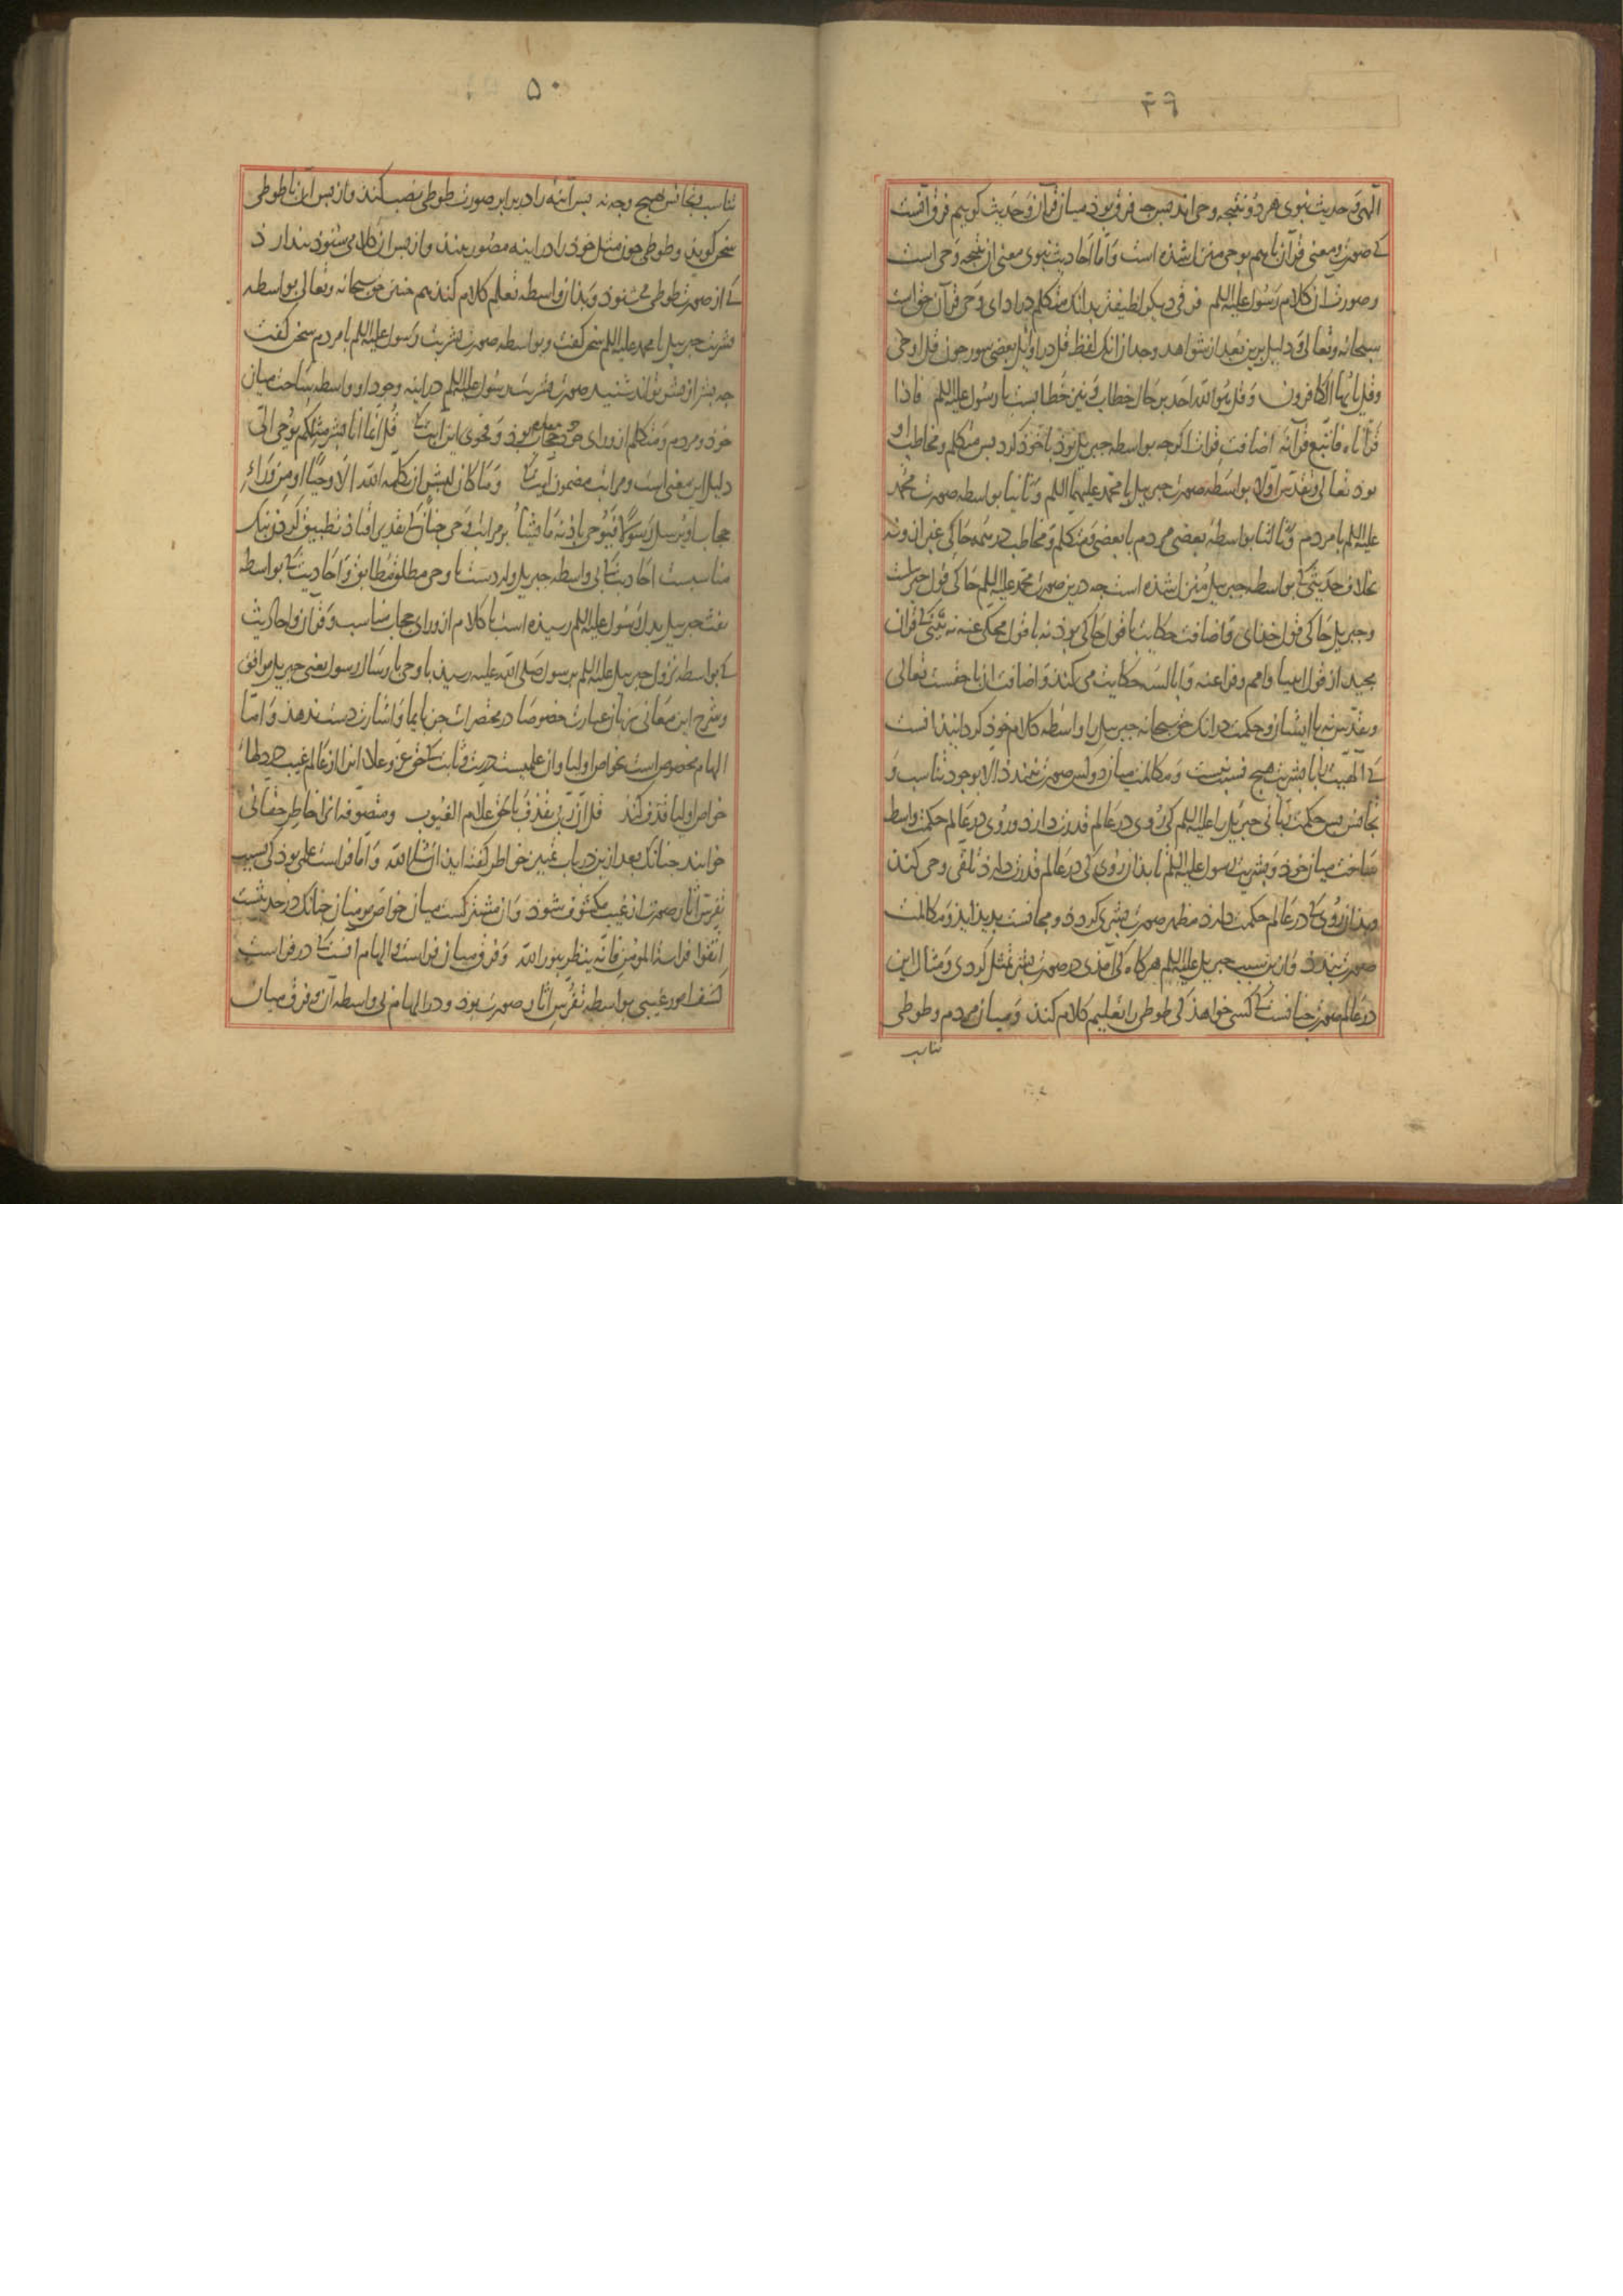 ۴۹
الهی و حدیث نبوی هر دو نتیجه وحی اند پس چه فرق بود میان قرآن و حدیث کوییم فرق آنست
کی صورت و معنی قرآن باهم بوحی منزل شده است و اما احادیث نبوی معنی از نتیجه وحی است
و صورت از کلام رسول علیه السلم فرقی دیکر لطیفتر بدانک متکلم در ادای وحی قرآن حق است
سبحانه و تعالی و دلیل برین بعد از شواهد وجدان آنک لفظ قل در اوایل بعضی سور چون قل اوحی
و قل یا ایها الکافرون و قل هو الله احد برحال خطاب و تعیین خطابست با رسول علیه السلم فاذا
قرأناه فاتبع قرآنه اضافت قرائت اکرچه بواسطه جبریل بود با خود کرد پس متکلم و مخاطب او
بود تعالی و تقدس اولا بواسطه صورت جبریل با محمد علیهما السلم و ثانیا بواسطه صورت محمد
علیه السلم با مردم و ثالثا بواسطه بعضی مردم با بعضی و متکلم و مخاطب در همه حاکی غیر از و نه
بخلاف حدیثی کی بواسطه جبریل منزل شده است چه درین صورت محمد علیه السلم حاکی قول جبریلست
و جبریل حاکی قول خدای و اضافت حکایت با قول حاکی بود نه با قول محکی عنه نه بینی کی قرآن
مجید از قول انبیا و امم و فراعنه و ابالسه حکایت می کند و اضافت آن با حقست تعالی
و تقدس نه با ایشان و حکمت در انک حق سبحانه جبریل را واسطه کلام خود کردانید آنست
کی الهیت را با بشریت هیچ نسبت نیست و مکالمت میان دو کس صورت نبندد الا بوجود تناسب و
تجانس پس حکمت ربانی جبریل را علیه السلم کی روی در عالم قدرت دارد و روی در عالم حکمت واسطه
ساخت میان خود و بشریت رسول علیه السلم تا بدان روی کی در عالم قدرت دارد تلقی وحی کند
و بدان روی کی در عالم حکمت دارد مظهر صورت بشری کردد و مجانست پدید آید و مکالمت
صورت بندد و ازین سبب جبریل علیه السلم هرکاه کی آمدی در صورت بشر تمثل کردی و مثال این
در عالم صورت چنانست کی کسی خواهد کی طوطی را تعلیم کلام کند و میان مردم و طوطی
تناسب
۵۰
تناسب و تجانس هیچ وجه نه پس آینه را در برابر صورت طوطی نصب کند و از پس آن با طوطی
سخن کوید و طوطی چون مثل خود را در آینه مصور بیند و از پس آن کلام می شنود پندارد
کی از صورت طوطی می شنود و بدان واسطه تعلم کلام کند هم چنین حق سبحانه و تعالی بواسطه
بشریت جبریل با محمد علیه السلم سخن کفت و بواسطه صورت بشریت رسول علیه السلم با مردم سخن کفت
چه بشر از بشر تواند شنید صورت بشریت رسول علیه السلم در آینه وجود او واسطه ساخت میان
خود و مردم و متکلم از ورای حجاب بود و فحوی این آیت کی قل انما انا بشر مثلکم یوحی الی
دلیل این معنی است و مراتب مضمون آیت کی و ما کان لبشر ان یکلمه الله الا وحیا او من وراء
حجاب او یرسل رسولا فیوحی باذنه ما یشاء بر مراتب وحی چنانک تقدیر افتاد تطبیق کردن نیک
مناسبست احادیث کی بی واسطه جبریل وارد است با وحی مطلق مطابق و احادیث کی بواسطه
نفث جبریل بدل رسول علیه السلم رسیده است با کلام از ورای حجاب مناسب و قرآن و احادیث
کی بواسطه نزول جبریل علیه السلم بر رسول صلی الله علیه رسید با وحی بارسال رسول یعنی جبریل موافق
و شرح این معانی به از عبارت خصوصا در مختصرات جز بایما و اشارت دست ندهد و اما
الهام مخصوص است بخواص اولیا و آن علمیست درست و ثابت کی حق عز و علا آنرا از عالم غیب در دلهاء
خواص اولیا قذف کند قل ان ربی یقذف بالحق علام الغیوب و متصوفه آنرا خاطر حقانی
خوانند چنانک بعد ازین در باب تمییز خواطر کفته آید ان شاء الله و اما فراست علمی بود کی بسبب
تفرس آثار صورت از غیب مکشوف شود و آن مشترکست میان خواص مومنان چنانک در حدیثست
اتقوا فراسة المومن فانه ینظر بنور الله و فرق میان فراست و الهام آنست کی در فراست
کشف امور غیبی بواسطه تفرس آثار صورت بود و در الهام بی واسطه آن و فرق میان